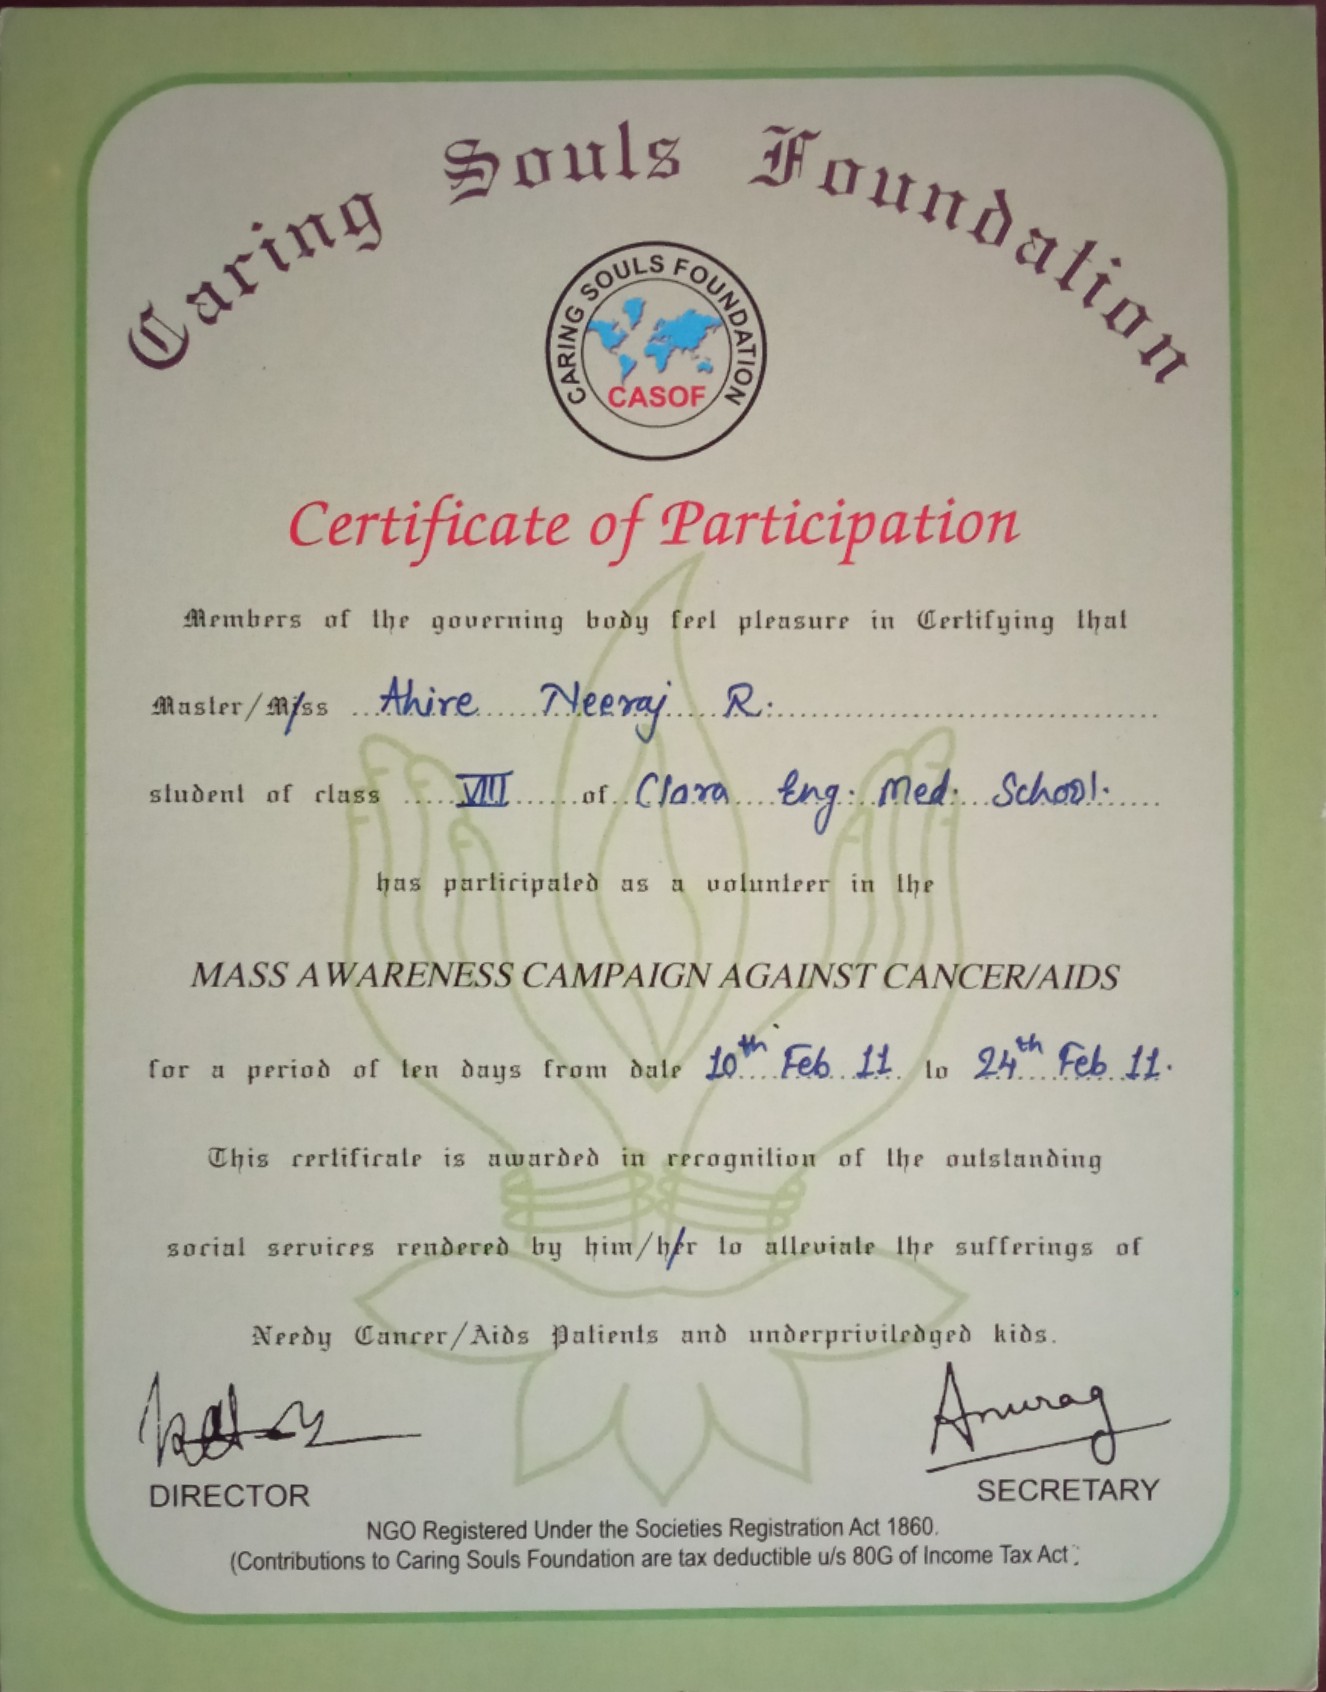 Caring Souls Foundation
CARING SOULS FOUNDATION
CASOF
Certificate of Participation
Members of the governing body feel pleasure in Certifying that
Master/Miss Ahire Neeraj R.
student of class VIII of Clara Eng. Med. School.
has participated as a volunteer in the
MASS AWARENESS CAMPAIGN AGAINST CANCER/AIDS
for a period of ten days from date 10th Feb 11 to 24th Feb 11.
This certificate is awarded in recognition of the outstanding
social services rendered by him/her to alleviate the sufferings of
Needy Cancer/Aids Patients and underpriviledged kids.
Anurag
DIRECTOR SECRETARY
NGO Registered Under the Societies Registration Act 1860.
(Contributions to Caring Souls Foundation are tax deductible u/s 80G of Income Tax Act